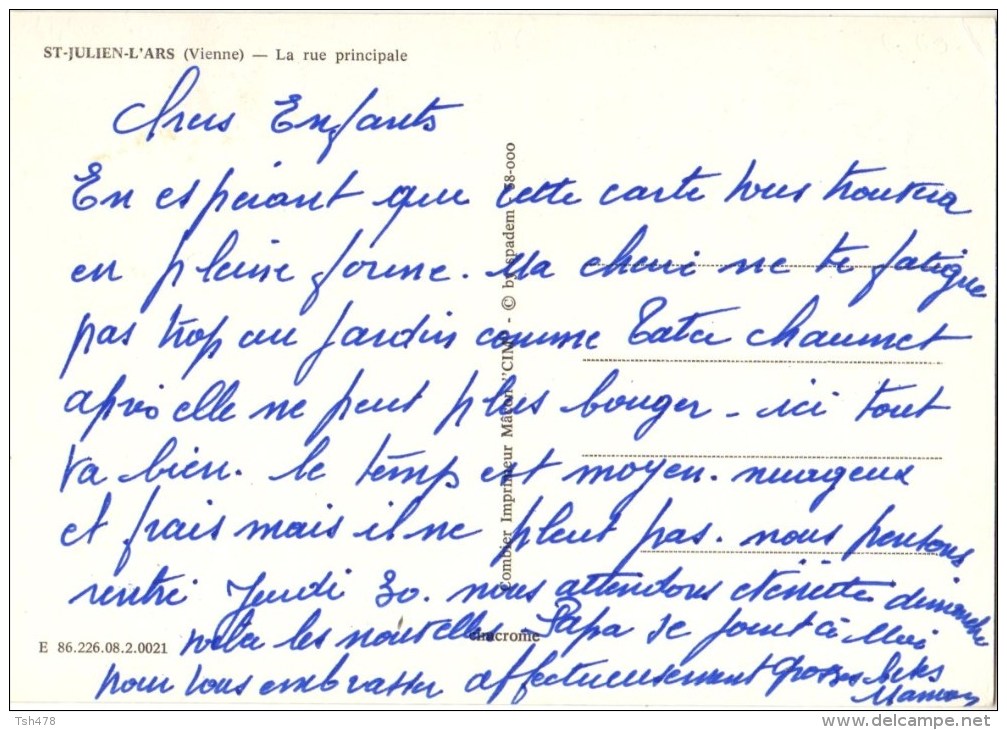 ST-JULIEN-L'ARS (Vienne) — La rue principale
Chers Enfants
En espérant que cette carte vous trouvera
en pleine forme. Ma cheri ne te fatigue
pas trop au jardin comme Tata Chaumet
après elle ne peut plus bouger - ici tout
va bien. le temp est moyen. nuageux
et frais mais il ne pleut pas. nous pensons
rentré Jeudi 30. nous attendons dimanche
voila les nouvelles. Papa se joint à Moi
pour vous embrasser affectueusement grosses bises
Maman
Combier Imprimeur Mâcon "CIM" - © by spadem 68-000
cimcrome
E 86.226.08.2.0021
Tsh478
www.delcampe.net